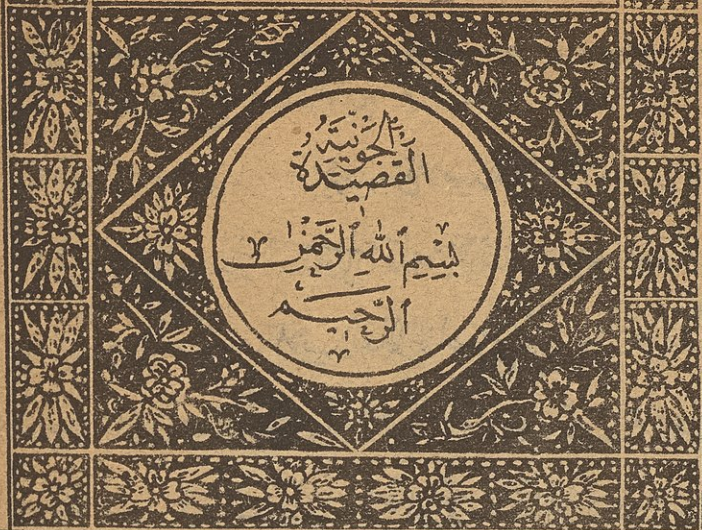 القَصِيدَةُ الجَوْنِيَّةُ
بِسْمِ ٱللَّهِ ٱلرَّحْمَٰنِ
ٱلرَّحِيمِ